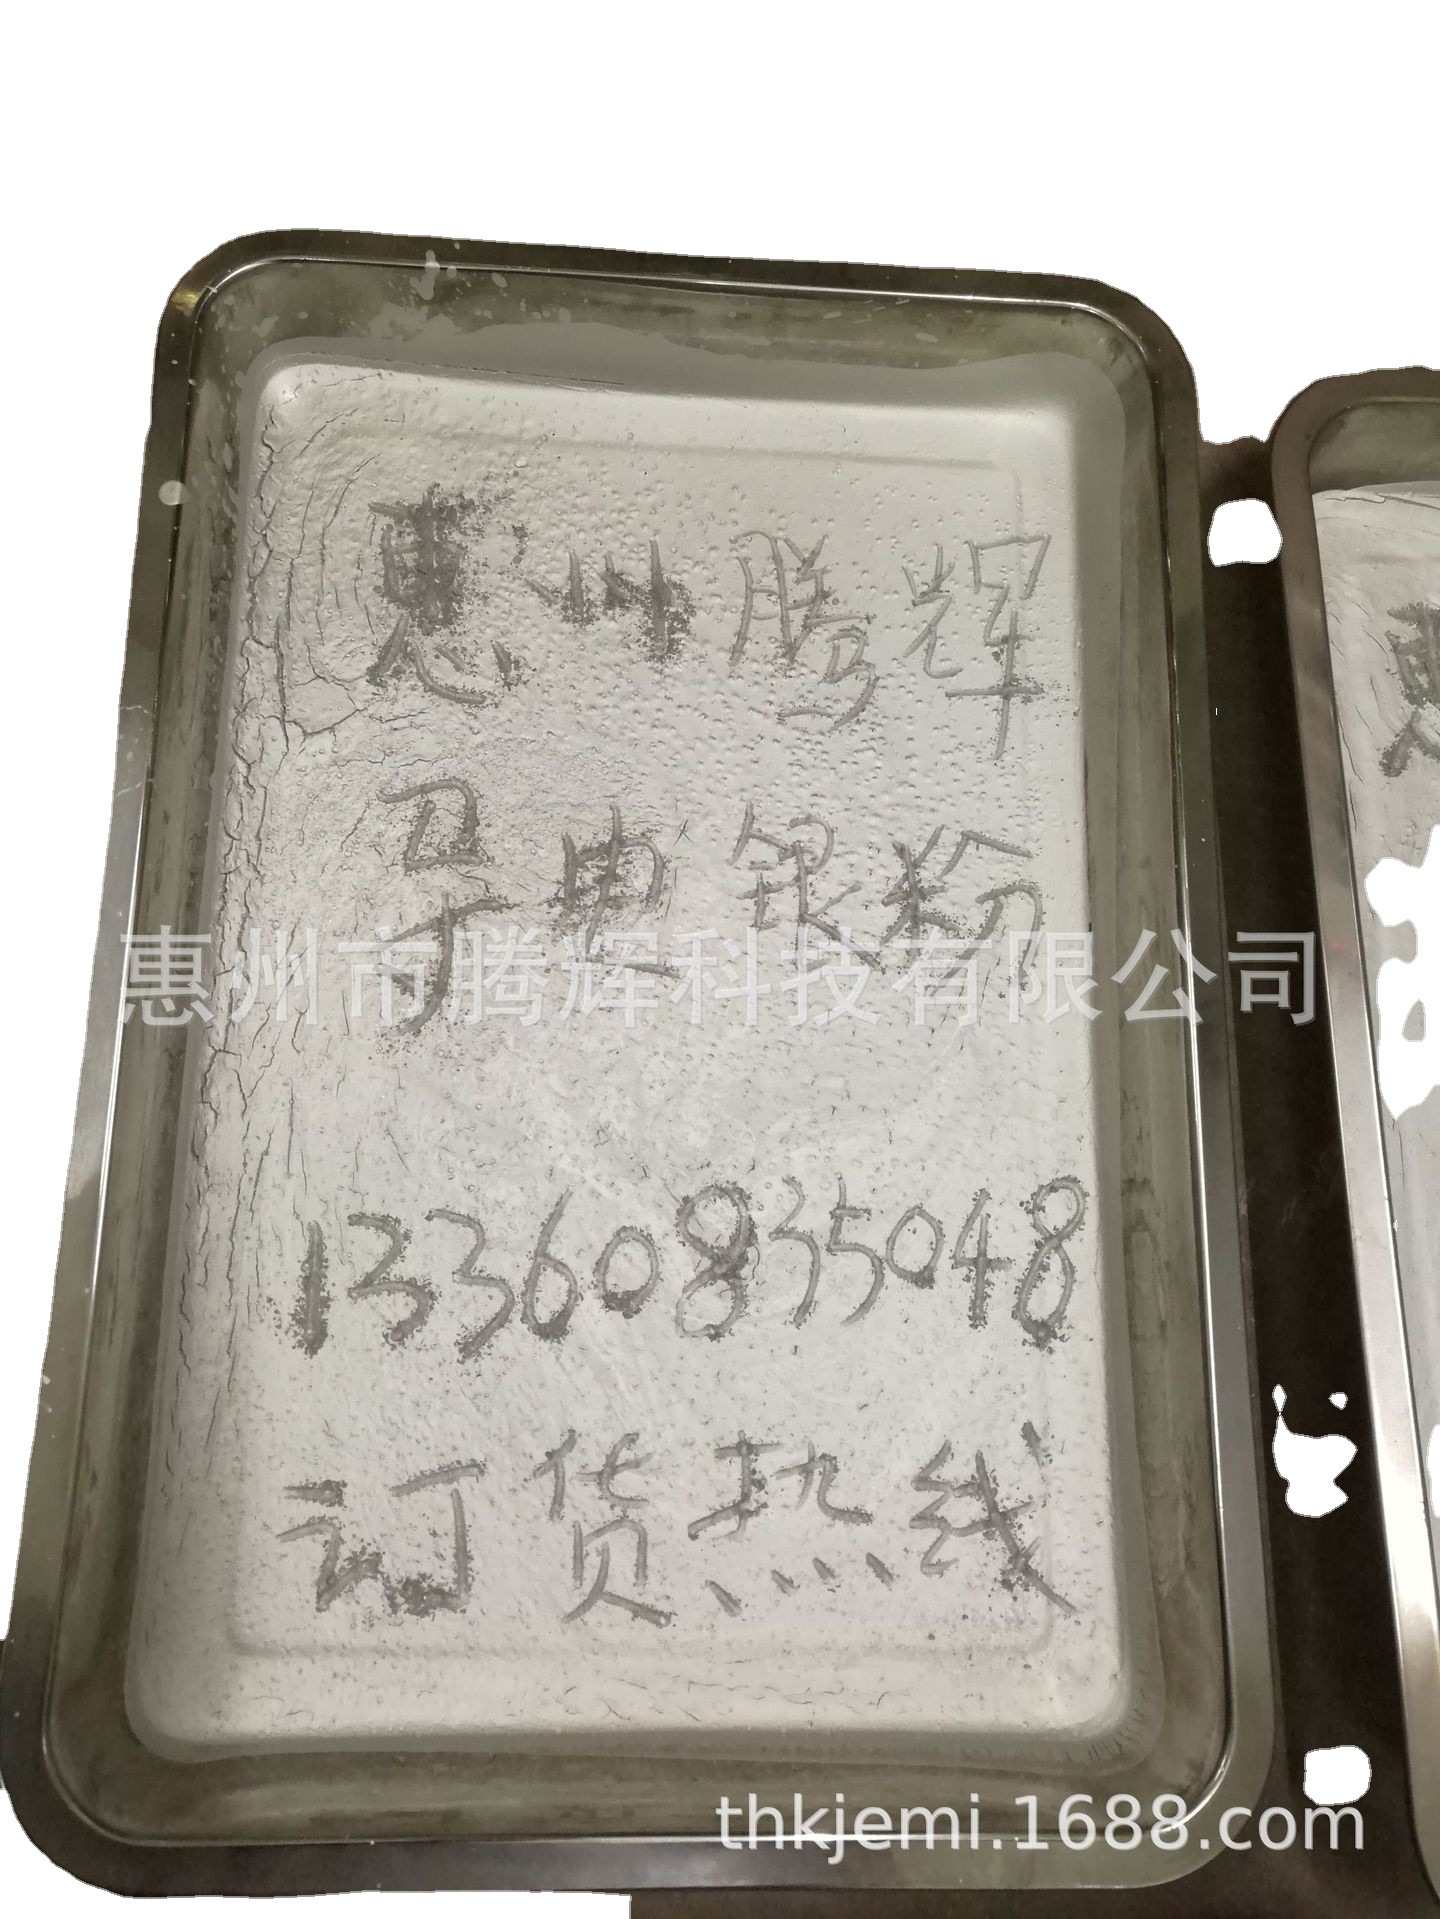 惠州腾辉
导电银粉
惠州市腾辉科技有限公司
13360835048
订货热线
thkjemi.1688.com